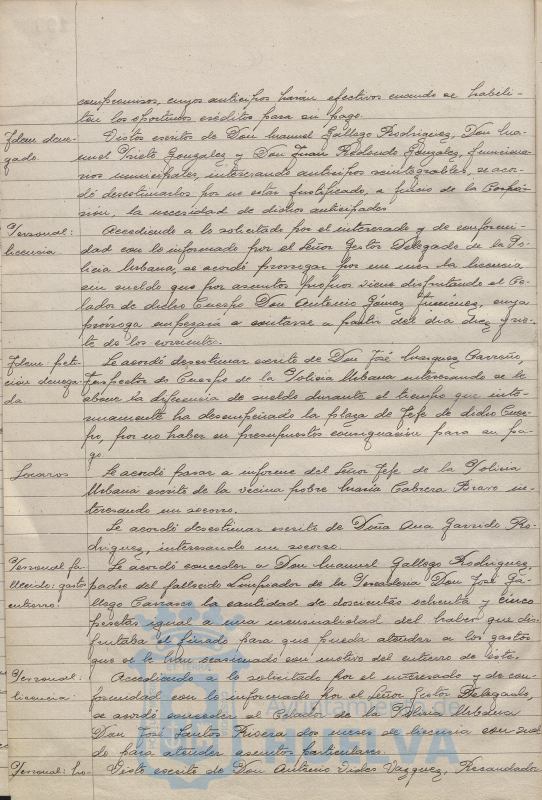 compromisos, cuyos anticipos harán efectivos cuando se habili-
ten los oportunos créditos para su pago.
Idem dene-
gado.
Vistos escritos de Don Manuel Gallego Rodríguez, Don Ma-
nuel Prieto González y Don Juan Redondo González, funciona-
rios municipales, interesando anticipos reintegrables, se acor-
dó desestimarlos por no estar justificado, a juicio de la Corpora-
ción, la necesidad de dichos anticipados
Personal:
licencia
Accediendo a lo solicitado por el interesado y de conformi-
dad con lo informado por el Señor Gestor Delegado de la Po-
licía Urbana, se acordó prorrogar por un mes la licencia
sin sueldo que por asuntos propios viene disfrutando el Ce-
lador de dicho Cuerpo Don Antonio Gómez Jiménez, cuya
prórroga empezará a contarse a partir del día diez y sie-
te de los corrientes.
Idem peti-
ción denega-
da
Se acordó desestimar escrito de Don José Márquez Carreño,
Inspector de Cuerpo de la Policía Urbana interesando se le
abone la diferencia de sueldo durante el tiempo que inte-
rinamente ha desempeñado la plaza de Jefe de dicho Cuer-
po, por no haber en presupuestos consignación para su pa-
go.
Socorros
Se acordó pasar a informe del Señor Jefe de la Policía
Urbana escrito de la vecina pobre María Cabrera Bravo in-
teresando un socorro.
Se acordó desestimar escrito de Doña Ana Garrido Ro-
dríguez, interesando un socorro.
Personal fa-
llecido: gastos
entierro.
Se acordó conceder a Don Manuel Gallego Rodríguez,
padre del fallecido Limpiador de la Pescadería Don José Ga-
llego Carrasco la cantidad de doscientas ochenta y cinco
pesetas igual a una mensualidad del haber que dis-
frutaba el finado para que pueda atender a los gastos
que se le han ocasionado con motivo del entierro de éste.
Personal:
licencia:
Accediendo a lo solicitado por el interesado y de con-
formidad con lo informado por el Señor Gestor Delegado,
se acordó conceder al Celador de la Policía Urbana
Don José Santos Rivera dos meses de licencia con suel-
do para atender asuntos particulares.
Personal:
Visto escrito de Don Antonio Vázquez, Recaudador
Ayuntamiento de
HUELVA